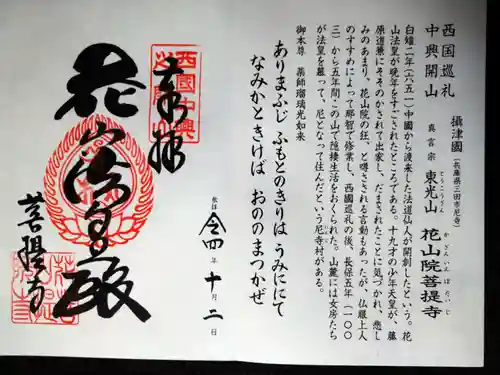 西国巡礼
中興開山
攝津國
(兵庫県三田市尼寺)
真言宗 東光山 花山院菩提寺
とうこうざん
かざんいんぼだいじ
白雉二年(六五一)中國から渡来した法道仙人が開創したという。花
山法皇が晩年をすごされたところである。十九才の少年天皇が、藤
原道兼にそそのかされて出家し、だまされたことに気づかれ、悲し
みのあまり、花山院の狂、と噂さされる言動もあったが、仏眼上人
のすすめによって那智で修業し、西國巡礼の後、長保五年(一〇〇
三)から五年間この山で隠棲生活をおくられた。山麓には女房たち
が法皇を慕って、尼となって住んだという尼寺村がある。
御本尊 薬師瑠璃光如来
ありまふじ ふもとのきりは うみににて
なみかときけば おののまつかぜ
令四年十月二日
奉拝
西国中興
花山法皇殿
菩提寺